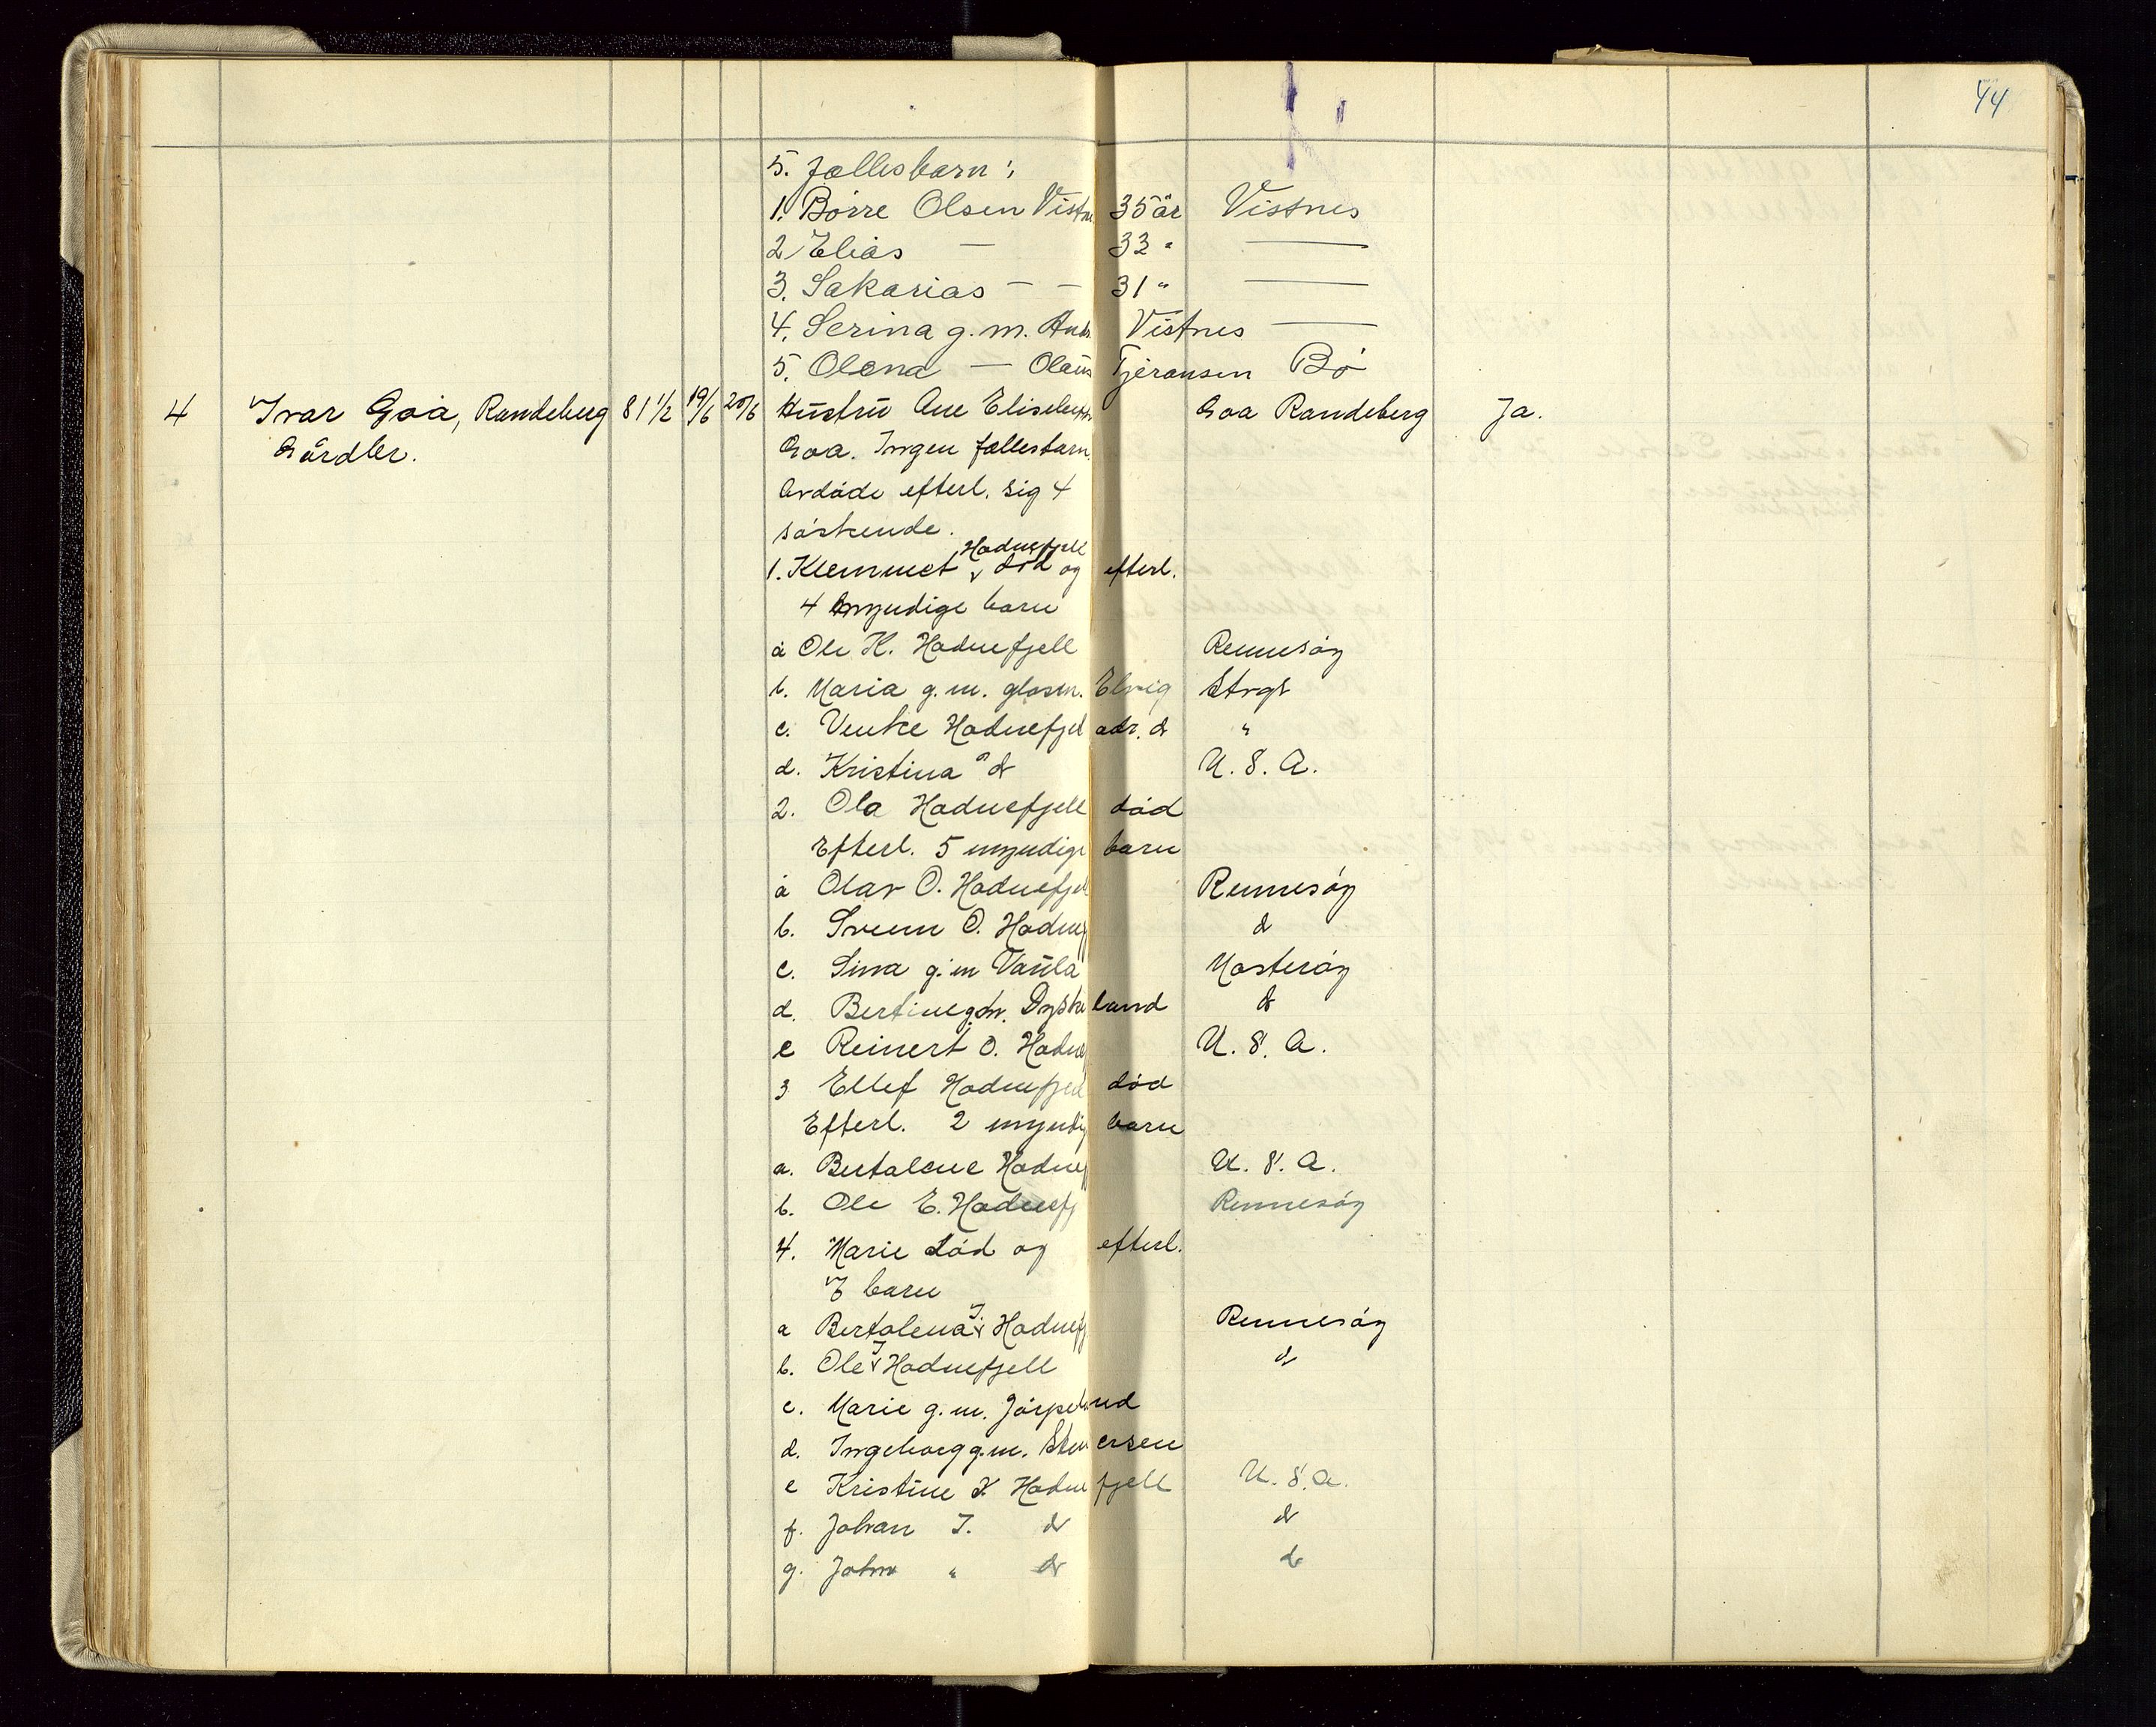 44
5. fællesbarn:
1. Børre Olsen Vistn 35 år Vistnes
2 Elias — 33 " —
3. Sakarias — — 31 " —
4. Serina g.m. Vistnes —
5. Olena — Olaus Tjeransen Bø
4 Ivar Goa, Randeberg 81 1/2 19/6 20/6 Hustru Ane Elisabeth Goa Randeberg Ja.
Gårdbr. Goa. Ingen fællesbarn.
Avdøde efterl. sig 4
søskende.
Hodnefjell
1. Klemmet v død og efterl.
4 myndige barn
a Ole K. Hodnefjell Rennesøy
b. Maria g.m. glasm. Elvig Stvgr
c. Venke Hodnefjel adr. do "
d. Kristina " do U.S.A.
2. Ola Hodnefjell død
Efterl. 5 myndige barn
a Olav O. Hodnefjel Rennesøy
b. Svenn O. Hodnef do
c. Sina g.m Vaula Mosterøy
d. Bertine g.m. Dysteland do
e Reinert O. Hodne U.S.A.
3 Ellef Hodnefjell død
Efterl. 2 myndig barn
a. Bertalene Hodnef U.S.A.
b. Ole E. Hodnefj Rennesøy
4. Marie død og efterl.
7 barn
a Bertalena I. Hodnefj Rennesøy
b. Ole I Hodnefjell do
c. Marie g.m. Jørpeland
d. Ingeborg g.m.
e Kristine I Hodnefjell U.S.A.
f. Johan I. do do
g. John " do do